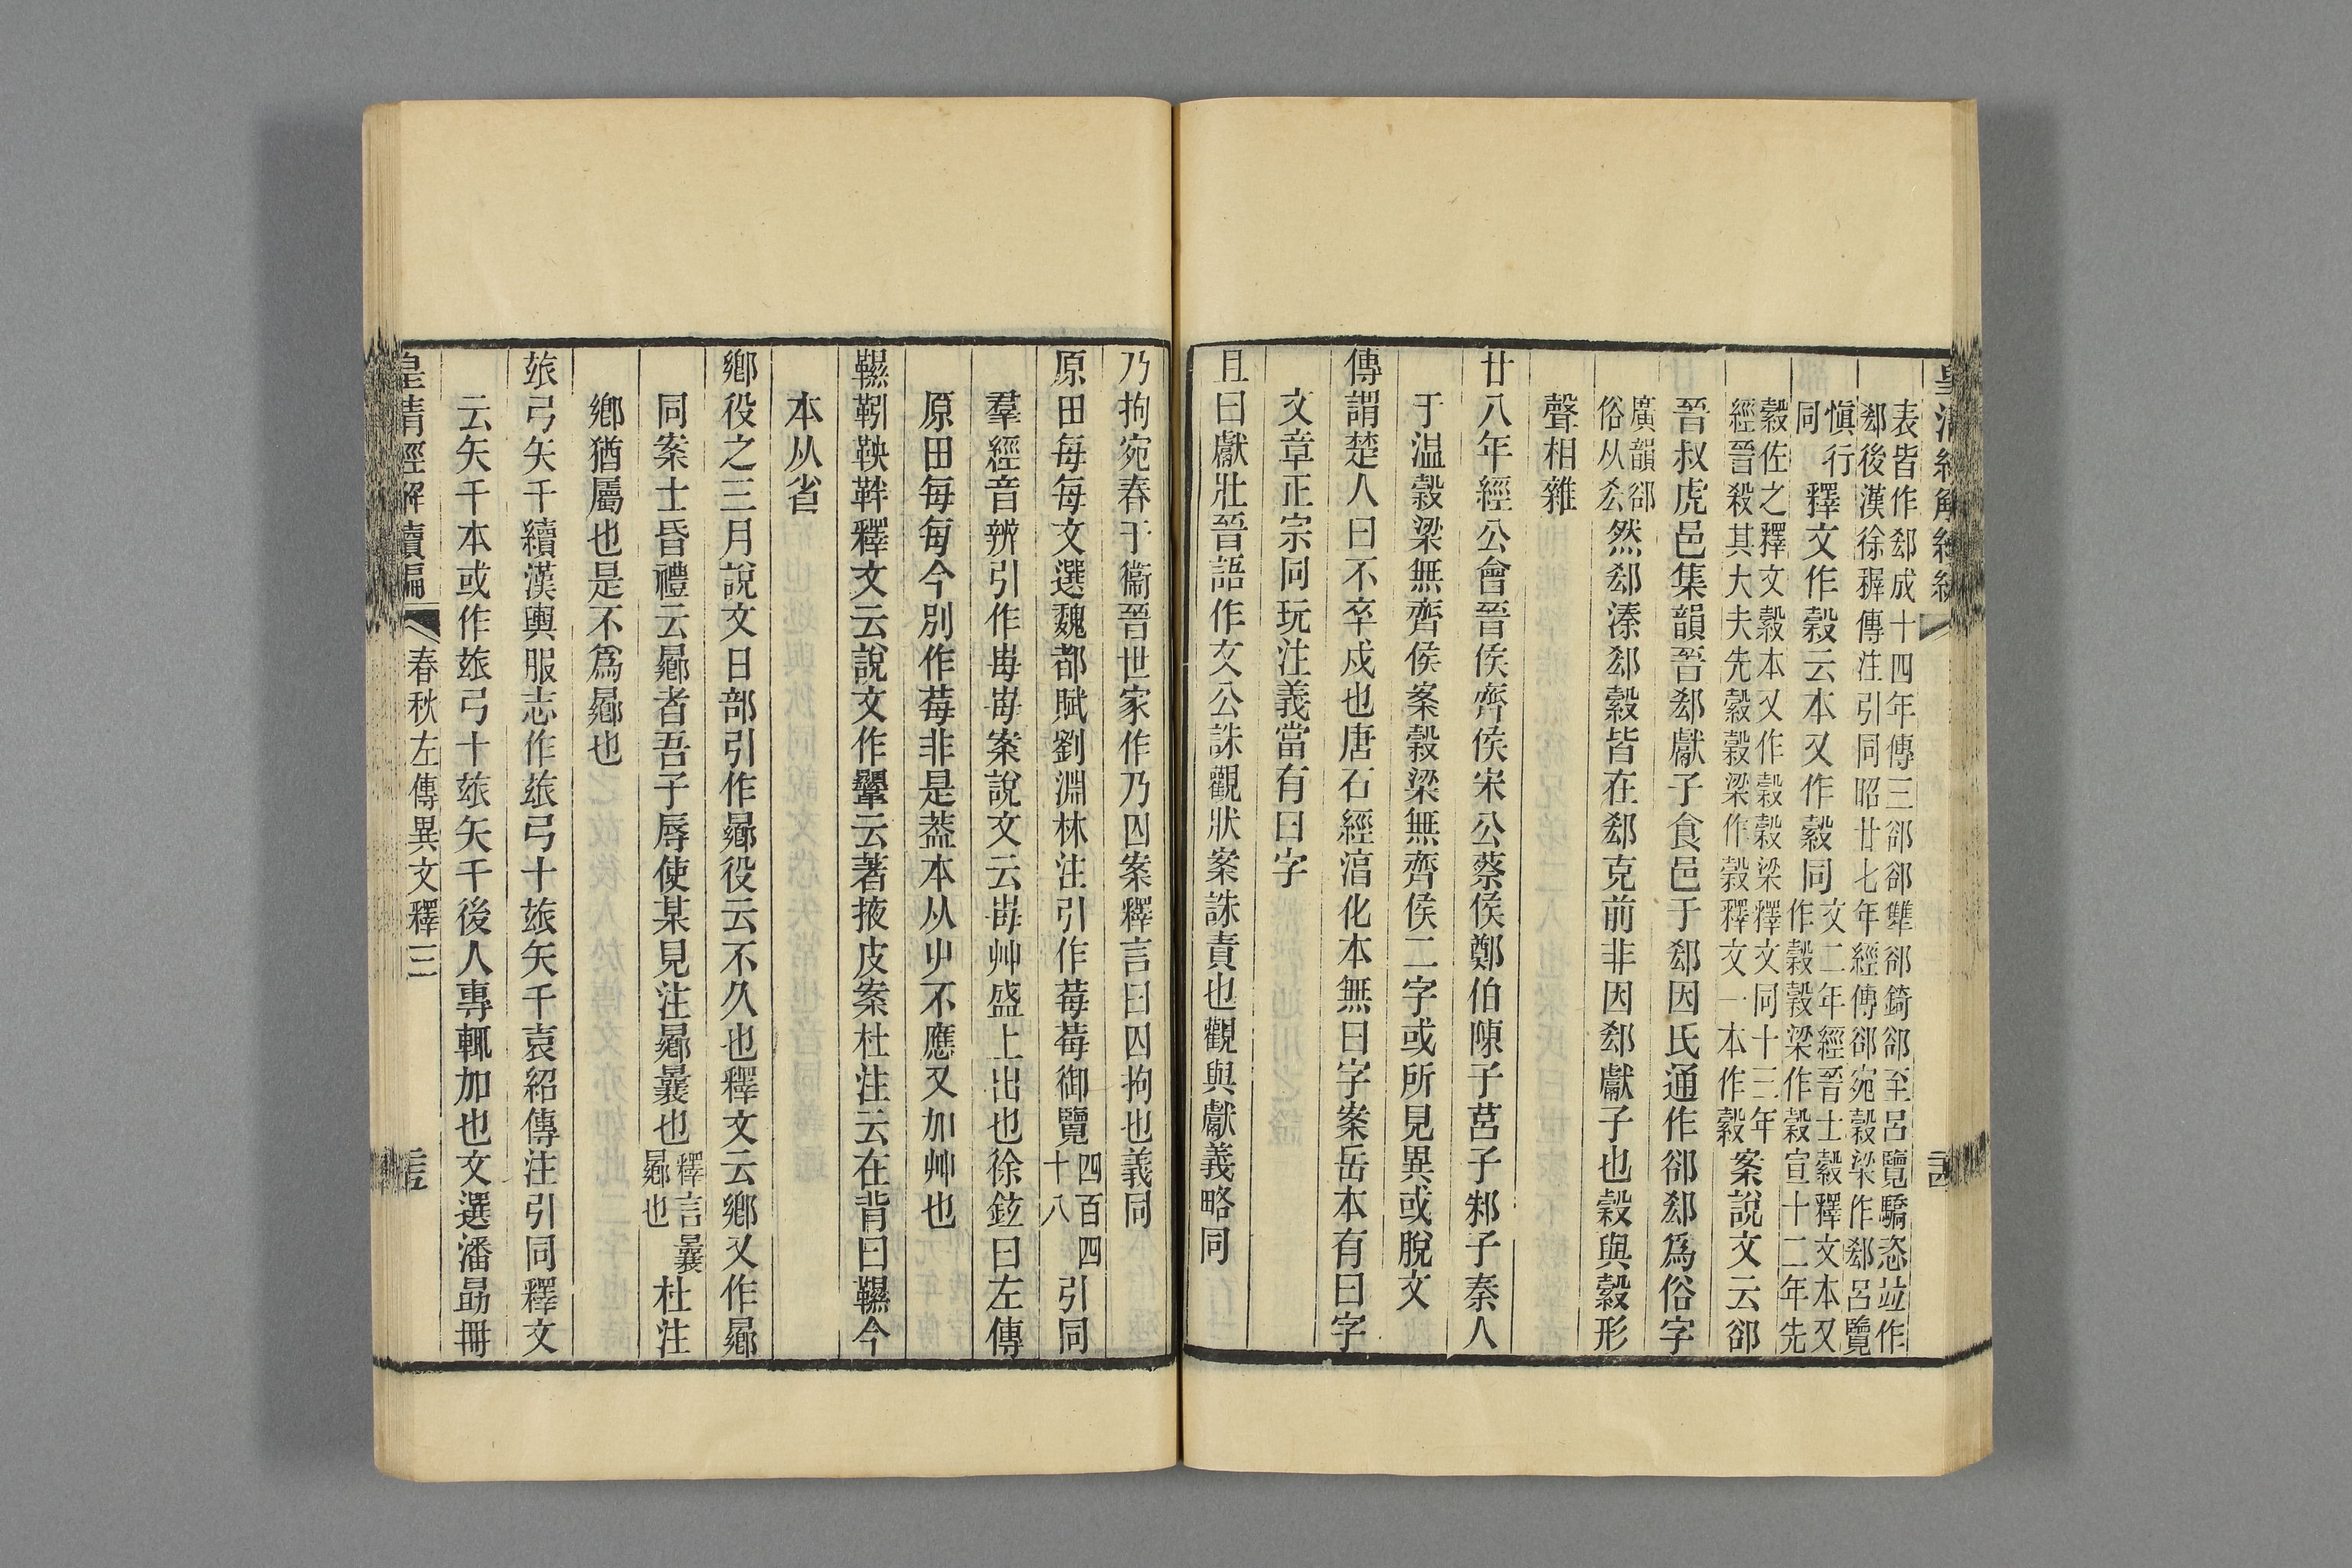 皇清經解續編
表皆作郄成十四年傳三郤郤犫郤錡郤至呂覽驕恣竝作
郄後漢徐穉傳注引同昭廿七年經傳郤宛穀梁作郄呂覽
愼行同釋文作縠云本又作縠同文二年經晉士縠釋文本又作穀穀梁作穀宣十二年先
縠佐之釋文縠本又作穀穀梁釋文同十三年
經晉殺其大夫先縠穀梁作穀釋文一本作縠案說文云郤
晉叔虎邑集韻晉郄獻子食邑于郄因氏通作郤郄爲俗字
廣韻郤俗从厺然郄溱郄縠皆在郄克前非因郄獻子也穀與縠形
聲相雜
廿八年經公會晉侯齊侯宋公蔡侯鄭伯陳子莒子邾子秦人
于温穀梁無齊侯案穀梁無齊侯二字或所見異或脫文
傳謂楚人曰不卒戍也唐石經湻化本無曰字案岳本有曰字
文章正宗同玩注義當有曰字
且曰獻壯晉語作文公誅觀狀案誅責也觀與獻義略同
乃拘宛春于衞晉世家作乃囚案釋言曰囚拘也義同
原田每每文選魏都賦劉淵林注引作莓莓御覽四百四十八引同
羣經音辨引作毎毎案說文云毎艸盛上出也徐鉉曰左傳
原田每每今別作莓非是葢本从屮不應又加艸也
韅靷鞅靽釋文云說文作㬎云著掖皮案杜注云在背曰韅今
本从省
鄉役之三月說文日部引作曏役云不久也釋文云鄉又作曏
同案士昏禮云曏者吾子辱使某見注曏曩也釋言曩曏也杜注
鄉猶屬也是不爲曏也
玈弓矢千續漢輿服志作玈弓十玈矢千袁紹傳注引同釋文
云矢千本或作玈弓十玈矢千後人專輒加也文選潘勗冊
皇清經解續編
春秋左傳異文釋三